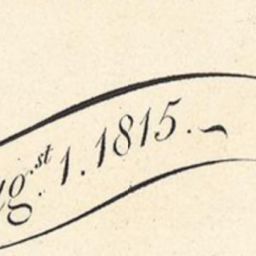 g.st 1. 1815.